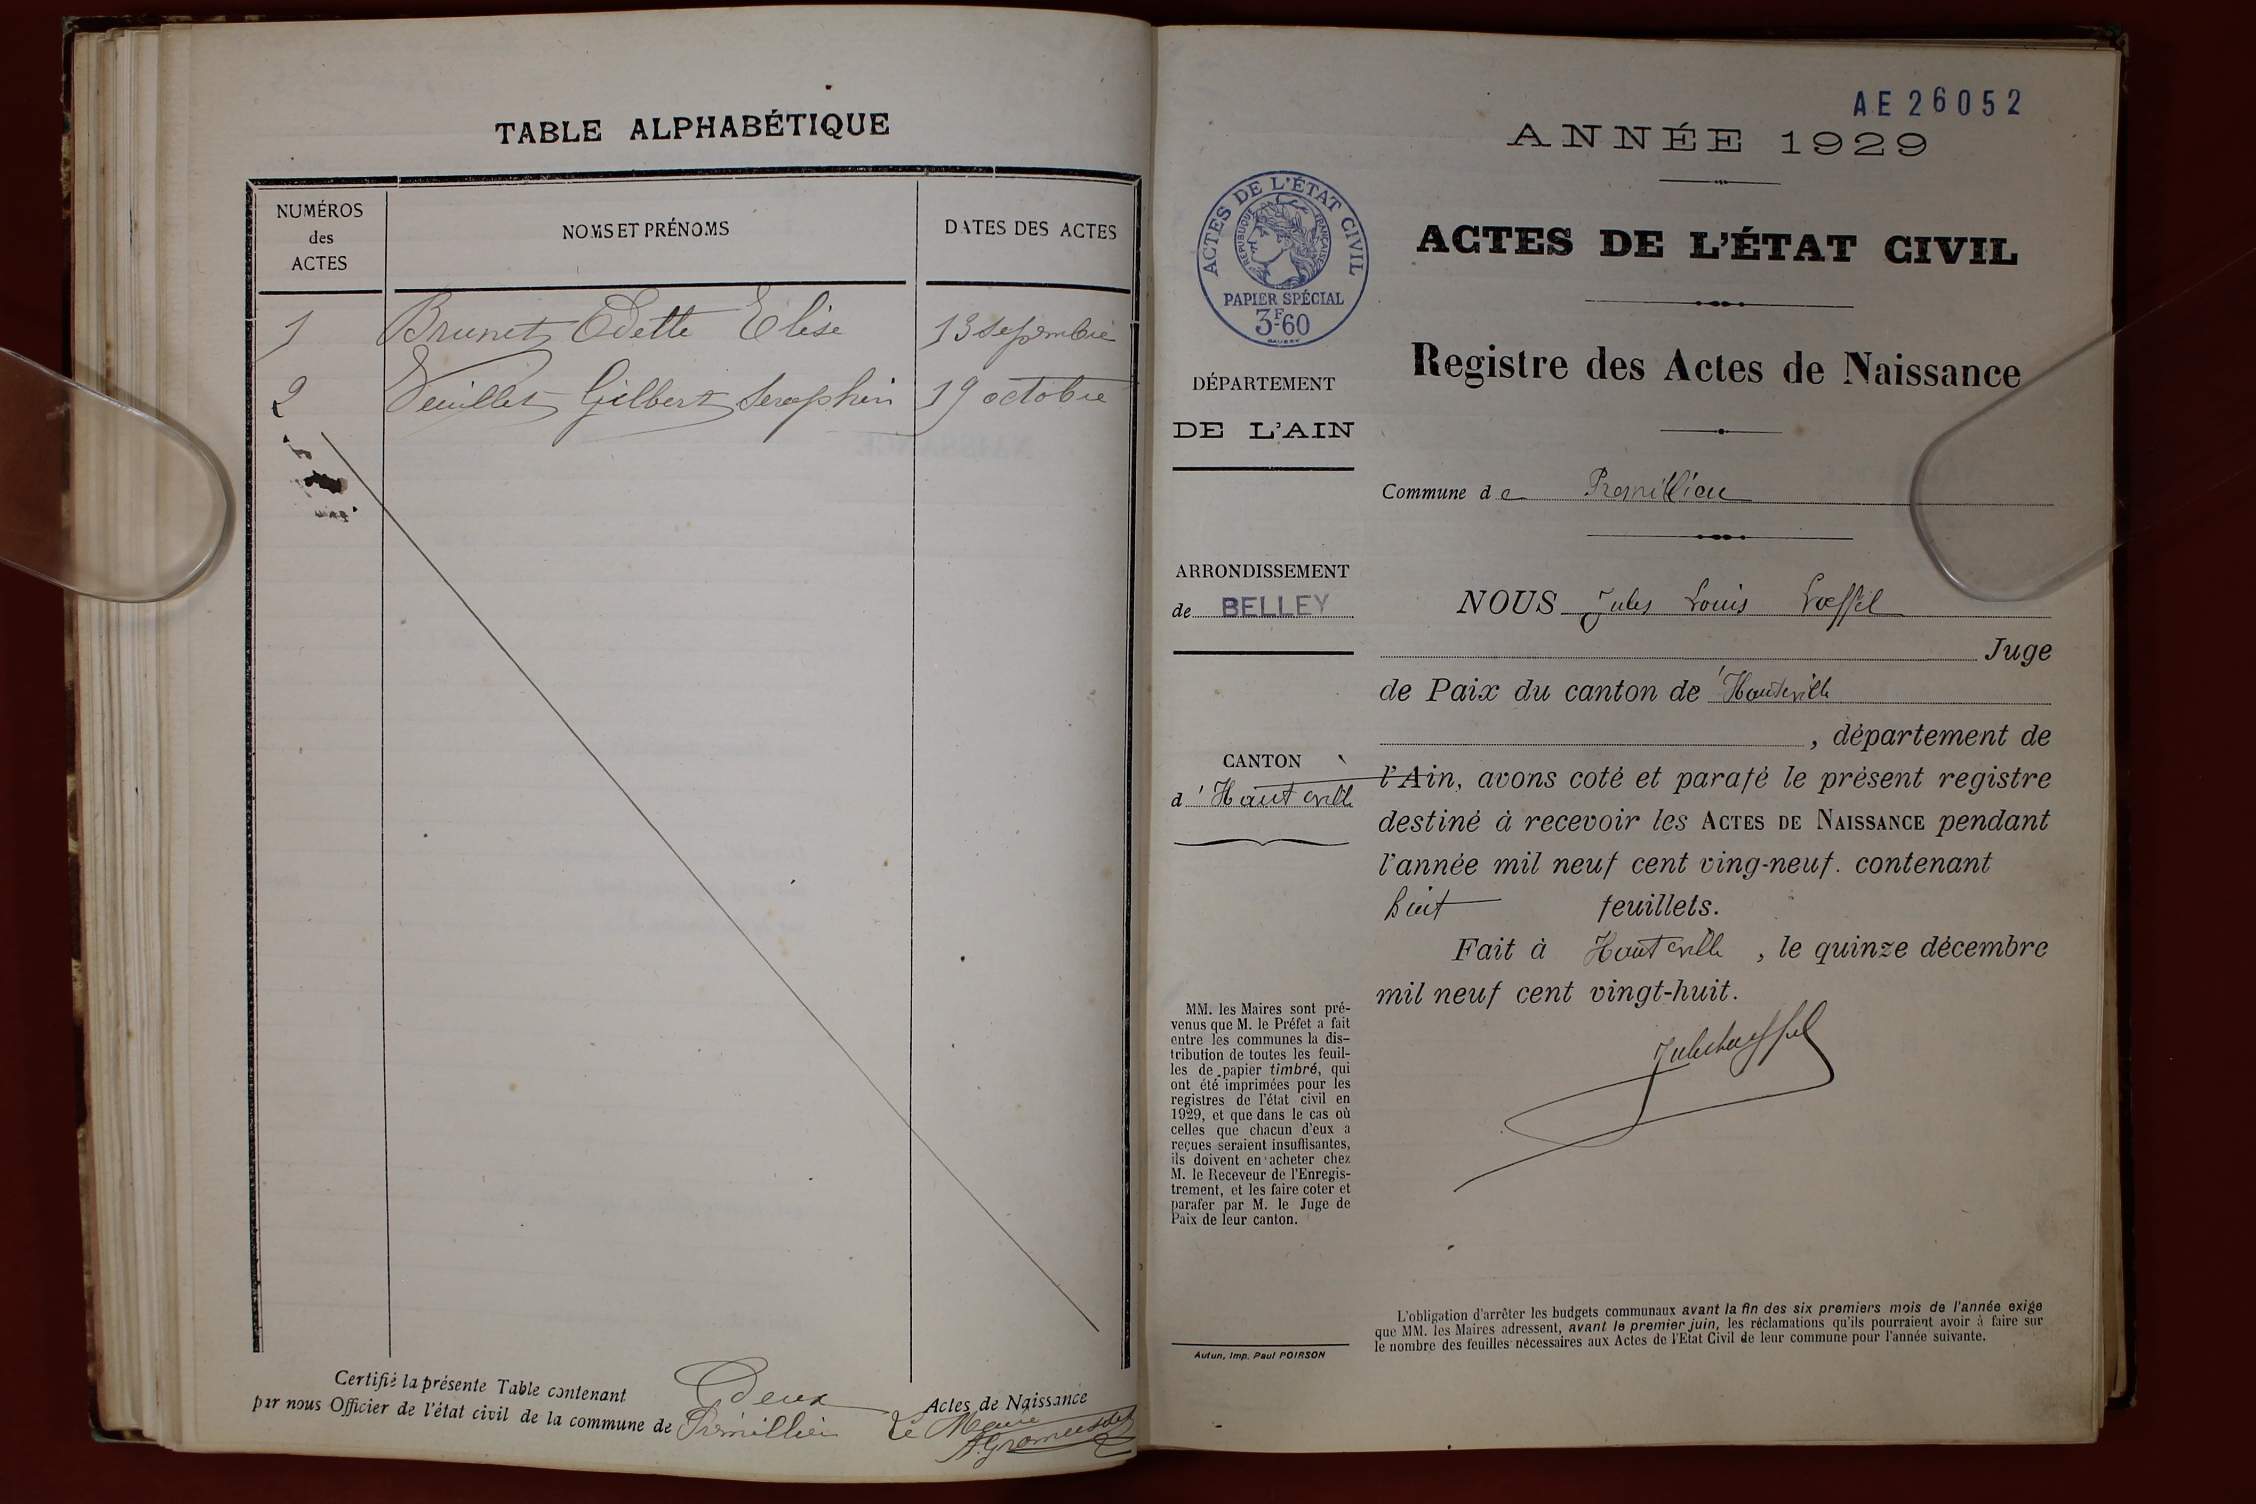 TABLE ALPHABÉTIQUE
NUMÉROS
des
ACTES
NOMS ET PRÉNOMS
DATES DES ACTES
1 Brunet Odette Elise 13 sepembre
2 Veuillet Gilbert Seraphin 19 octobre
Certifié la présente Table contenant deux Actes de Naissance
par nous Officier de l'état civil de la commune de Prémillieu Le Maire
AE 26052
ANNÉE 1929
ACTES DE L'ÉTAT CIVIL
RÉPUBLIQUE FRANÇAISE
PAPIER SPÉCIAL
3F60
ACTES DE L'ÉTAT CIVIL
Registre des Actes de Naissance
DÉPARTEMENT
DE L'AIN
Commune de Premillieu
ARRONDISSEMENT
de BELLEY
CANTON
d'Hauteville
NOUS Jules Louis Lœffel
Juge
de Paix du canton de 'Hauteville
, département de
l'Ain, avons coté et parafé le présent registre
destiné à recevoir les ACTES DE NAISSANCE pendant
l'année mil neuf cent ving-neuf. contenant
huit feuillets.
Fait à Hauteville, le quinze décembre
mil neuf cent vingt-huit.
MM. les Maires sont pré-
venus que M. le Préfet a fait
entre les communes la dis-
tribution de toutes les feuil-
les de papier timbré, qui
ont été imprimées pour les
registres de l'état civil en
1929, et que dans le cas où
celles que chacun d'eux a
reçues seraient insuffisantes,
ils doivent en acheter chez
M. le Receveur de l'Enregis-
trement, et les faire coter et
parafer par M. le Juge de
Paix de leur canton.
Autun, Imp. Paul POIRSON
L'obligation d'arrêter les budgets communaux avant la fin des six premiers mois de l'année exige
que MM. les Maires adressent, avant le premier juin, les réclamations qu'ils pourraient avoir à faire sur
le nombre des feuilles nécessaires aux Actes de l'Etat Civil de leur commune pour l'année suivante.